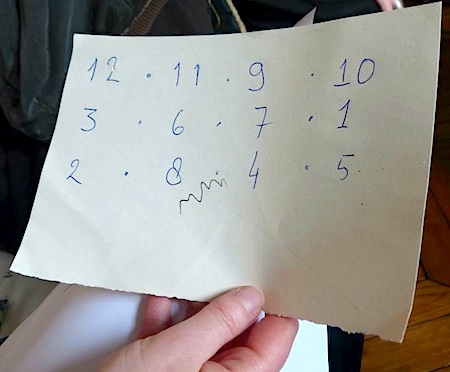 12 · 11 · 9 · 10
3 · 6 · 7 · 1
2 · 8 · 4 · 5